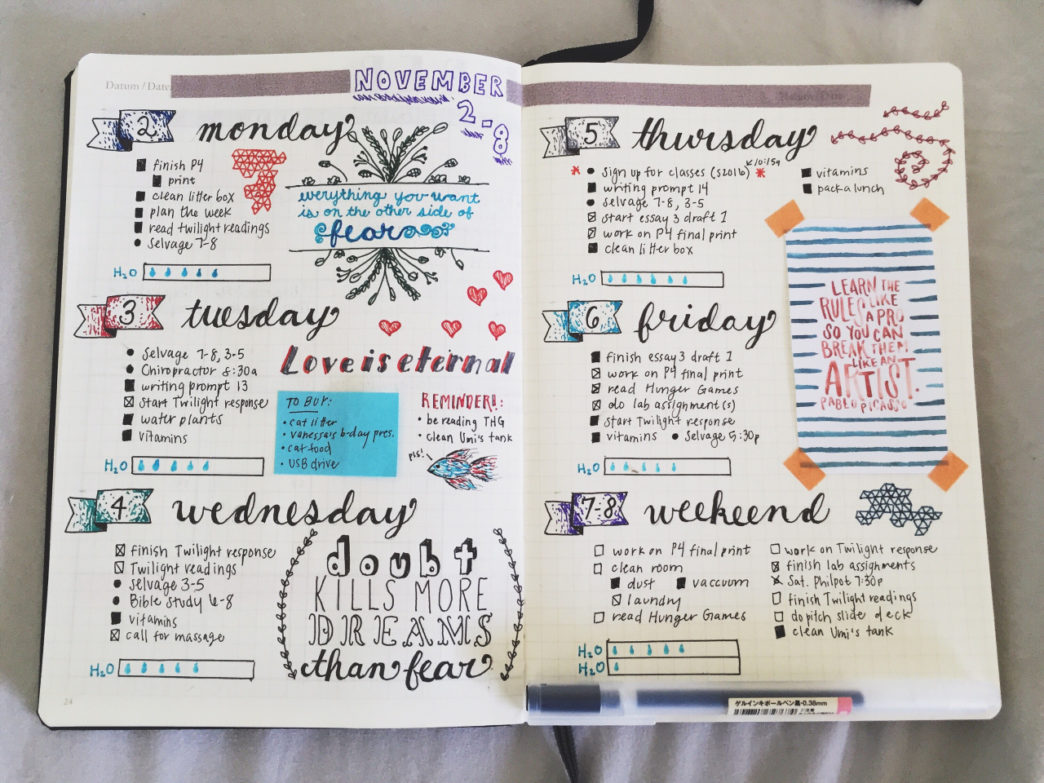 Datum / Date:
NOVEMBER
2-8
2 monday
finish P4
print
clean litter box
plan the week
read twilight readings
Selvage 7-8
H2O
everything you want
is on the other side of
fear
3 tuesday
Selvage 7-8, 3-5
Chiropractor 8:30a
writing prompt 13
start Twilight response
water plants
vitamins
H2O
Love is eternal
TO BUY:
• cat litter
• vanessa's b-day pres.
• cat food
• USB drive
REMINDER!:
• be reading THG
• clean Umi's tank
pls!
4 wednesday
finish Twilight response
Twilight readings
Selvage 3-5
Bible Study 6-8
vitamins
call for massage
H2O
doubt
KILLS MORE
DREAMS
than fear
24
5 thursday
* sign up for classes (S2016) * 10:15a
writing prompt 14
selvage 7-8, 3-5
start essay 3 draft 1
work on P4 final print
clean litter box
vitamins
pack a lunch
H2O
6 friday
finish essay 3 draft 1
work on P4 final print
read Hunger Games
do lab assignment(s)
start Twilight response
vitamins • Selvage 5:30p
H2O
LEARN THE
RULES LIKE
A PRO
SO YOU CAN
BREAK THEM
LIKE AN
ARTIST.
PABLO PICASSO
7-8 weekeend
work on P4 final print
clean room
dust vaccuum
laundry
read Hunger Games
work on Twilight response
finish lab assignments
Sat. Philpot 7:30p
finish Twilight readings
do pitch slide deck
clean Umi's tank
H2O
H2O
ゲルインキボールペン黒・0.38mm